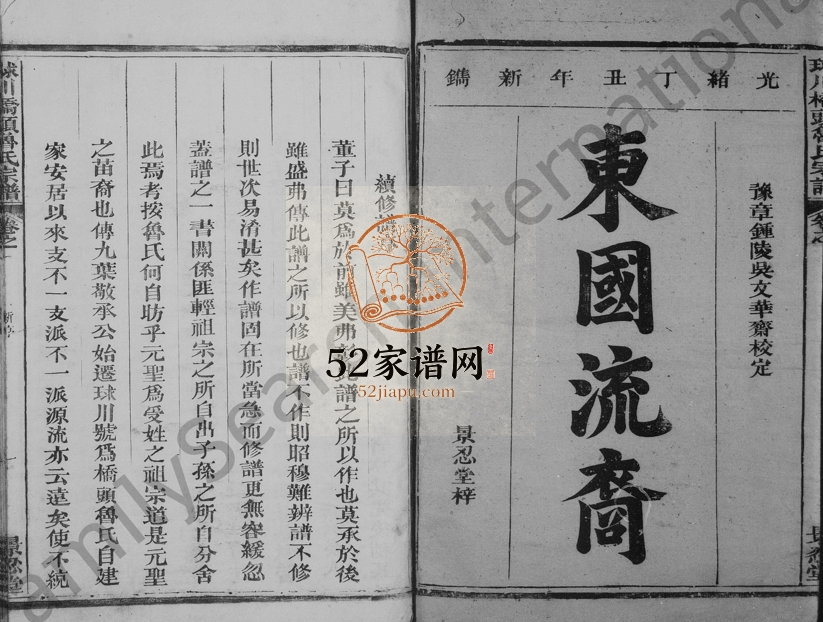 光緒丁丑年新鐫
豫章鍾陵吳文華齋校定
東國流裔
景忍堂梓
球川橋頭魯氏宗譜
卷之
景忍堂
續修
董子曰莫爲於前雖美弗彰此譜之所以作也莫承於後
雖盛弗傳此譜之所以修也譜不作則昭穆難辨譜不修
則世次易淆甚矣作譜固在所當急而修譜更無容緩忽
蓋譜之一書關係匪輕祖宗之所自出子孫之所自分舍
此焉考按魯氏何自昉乎元聖爲受姓之祖宗道是元聖
之苗裔也傳九葉敬承公始遷球川號爲橋頭魯氏自建
家安居以來支不一支派不一派源流亦云遠矣使不統
球川橋頭魯氏宗譜
卷之一
景忍堂
52家谱网
52jiapu.com
FamilySearch International